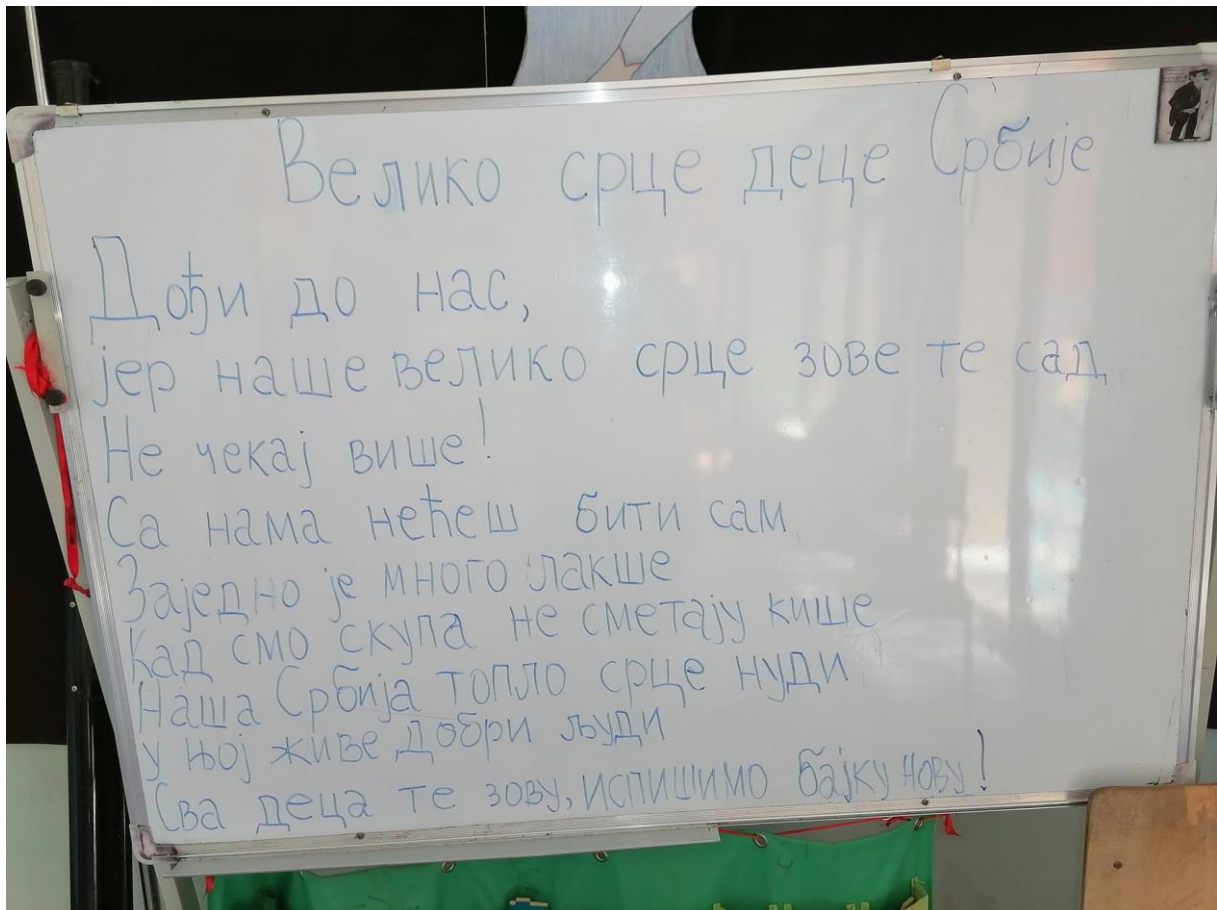 Велико срце деце Србије
Дођи до нас,
јер наше велико срце зове те сад
Не чекај више!
Са нама нећеш бити сам
Заједно је много лакше
Кад смо скупа не сметају кише
Наша Србија топло срце нуди
у њој живе добри људи
Сва деца те зову, испишимо бајку нову!